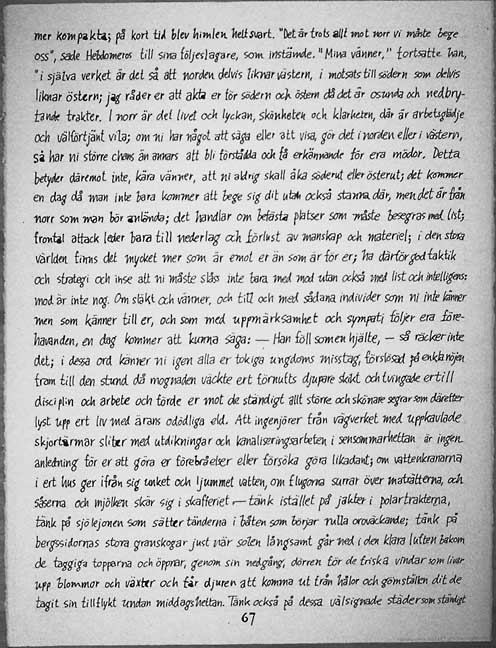 mer kompakta; på kort tid blev himlen helt svart. "Det är trots allt mot norr vi måste bege
oss", sade Hebdomeros till sina följeslagare, som instämde. "Mina vänner," fortsatte han,
"i själva verket är det så att norden delvis liknar västern, i motsats till södern som delvis
liknar östern; jag råder er att akta er för södern och östern då det är osunda och nedbry-
tande trakter. I norr är det livet och lyckan, skönheten och klarheten, där är arbetsglädje
och välförtjänt vila; om ni har något att säga eller att visa, gör det i norden eller i västern,
så har ni större chans än annars att bli förstådda och få erkännande för era mödor. Detta
betyder däremot inte, kära vänner, att ni aldrig skall åka söderut eller österut; det kommer
en dag då man inte bara kommer att bege sig dit utan också stanna där, men det är från
norr som man bör anlända; det handlar om befästa platser som måste besegras med list;
frontal attack leder bara till nederlag och förlust av manskap och materiel; i den stora
världen finns det mycket mer som är emot er än som är för er; ha därför god taktik
och strategi och inse att ni måste slåss inte bara med mod utan också med list och intelligens:
mod är inte nog. Om släkt och vänner, och till och med sådana individer som ni inte känner
men som känner till er, och som med uppmärksamhet och sympati följer era före-
havanden, en dag kommer att kunna säga: — Han föll som en hjälte, — så räcker inte
det; i dessa ord känner ni igen alla er tokiga ungdoms misstag, förslösad på enkla nöjen
fram till den stund då mognaden väckte ert förnufts djupare skikt och tvingade er till
disciplin och arbete och förde er mot de ständigt allt större och skönare segrar som därefter
lyst upp ert liv med ärans odödliga eld. Att ingenjörer från vägverket med uppkavlade
skjortärmar sliter med utdikningar och kanaliseringsarbeten i sensommarhettan är ingen
anledning för er att göra er förebråelser eller försöka göra likadant; om vattenkranarna
i ert hus ger ifrån sig unket och ljummet vatten, om flugorna surrar över maträtterna, och
såserna och mjölken skär sig i skafferiet — tänk istället på jakter i polartrakterna,
tänk på sjölejonen som sätter tänderna i båten som börjar rulla oroväckande; tänk på
bergssidornas stora granskogar just när solen långsamt går ned i den klara luften bakom
de taggiga topparna och öppnar, genom sin nedgång, dörren för de friska vindar som livar
upp blommor och växter och får djuren att komma ut från hålor och gömställen dit de
tagit sin tillflykt undan middagshettan. Tänk också på dessa välsignade städer som ständigt
67